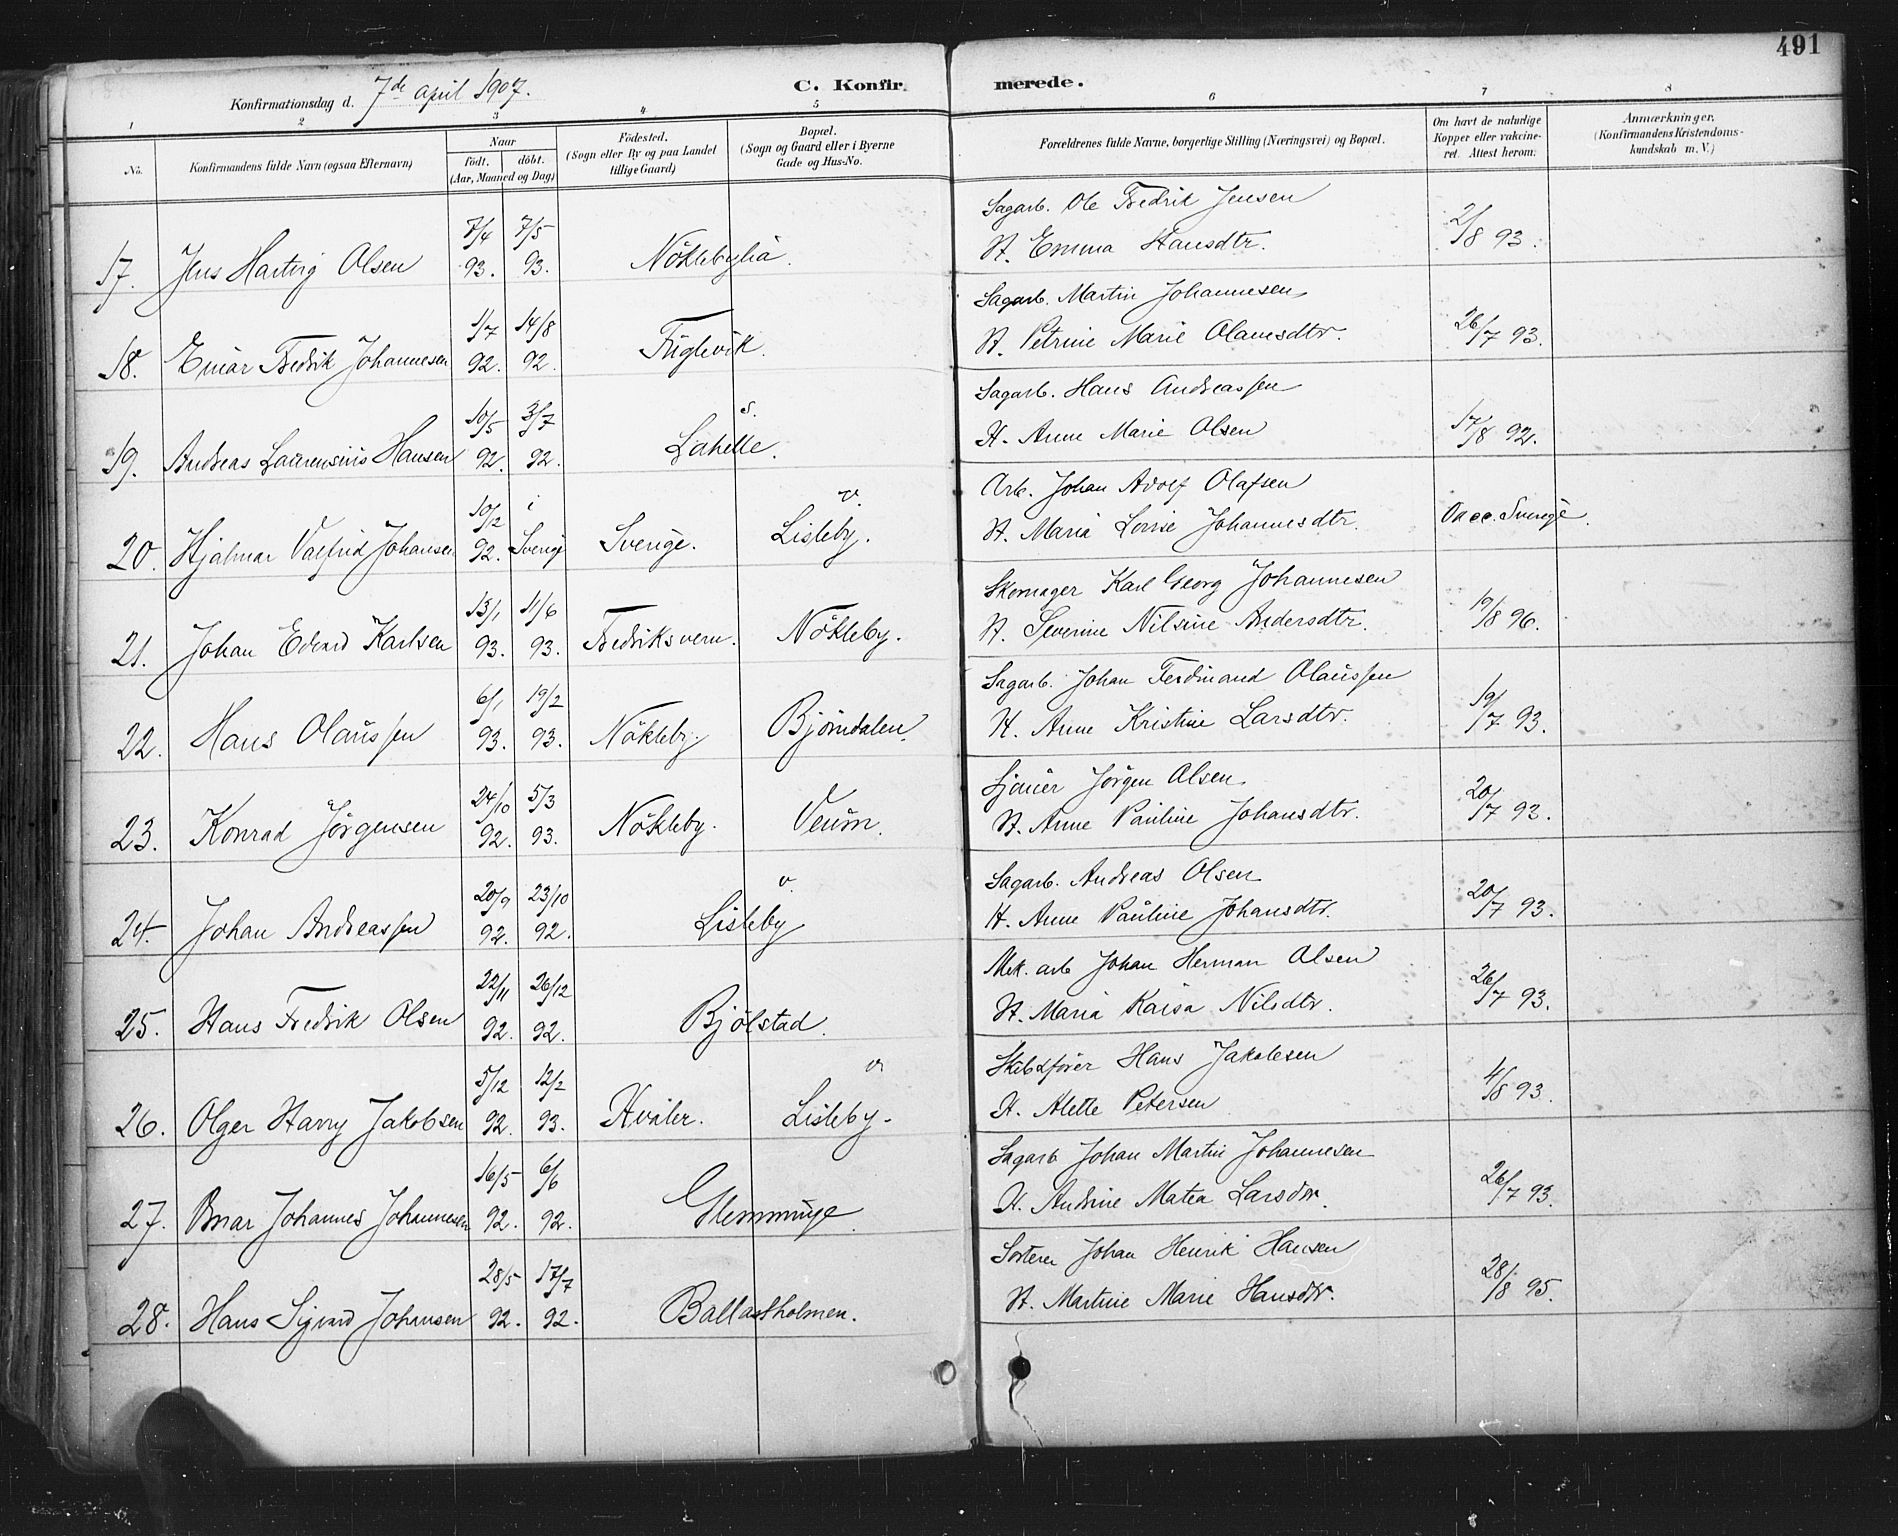 491
Konfirmationsdag d. 7de april 1907. C. Konfirmerede.
1 2 3 4 5 6 7 8
No. Konfirmandens fulde Navn (ogsaa Efternavn) Naar födt. döbt. (Aar, Maaned og Dag) Födested. (Sogn eller By og paa Landet tillige Gaard) Bopæl. (Sogn og Gaard eller i Byerne Gade og Hus-No. Forældrenes fulde Navne, borgerlige Stilling (Næringsvei) og Bopæl. Om havt de naturlige Kopper eller vakcineret. Attest herom. Anmærkninger. (Konfirmandens Kristendomskundskab m. V.)
17. Jens Hartvig Olsen 7/4 93. 7/5 93. Nöklebylia. Sagarb. Ole Fredrik Jensen
H. Emma Hansdtr. 2/8 93.
18. Einar Fredrik Johannesen 1/7 92. 14/8 92. Fuglevik. Sagarb. Martin Johannesen
H. Petrine Marie Olausdtr. 26/7 93.
19. Andreas Laurensius Hansen 10/5 92. 3/7 92. s. Lahelle. Sagarb. Hans Andreassen
H. Anne Marie Olsen 17/8 92.
20. Hjalmar Valfrid Johansen 10/2 92. i Sverige Sverige. v. Lisleby. Arb. Johan Adolf Olafsen
H. Maria Lovise Johannesdtr. Vacc. Sverige.
21. Johan Edvard Karlsen 13/1 93. 11/6 93. Fredriksvern. Nökleby. Skomager Karl Georg Johannesen
H. Severine Nilsine Andersdtr. 19/8 96.
22. Hans Olaussen 6/1 93. 19/2 93. Nökleby. Björndalen. Sagarb. Johan Ferdinand Olaussen
H. Anne Kristine Larsdtr. 19/7 93.
23. Konrad Jörgensen 24/10 92. 5/3 93. Nökleby. Veum. Sjauer Jörgen Olsen
H. Anne Pauline Johansdtr. 20/7 93.
24. Johan Andreassen 20/9 92. 23/10 92. v. Lisleby Sagarb. Andreas Olsen
H. Anne Pauline Johansdtr. 20/7 93.
25. Hans Fredrik Olsen 22/11 92. 26/12 92. Bjölstad. Mek. arb Johan Herman Olsen
H. Maria Kaisa Nilsdtr. 26/7 93.
26. Olger Harry Jakobsen 5/12 92. 12/2 93. Hvaler. v. Lisleby. Skibsförer Hans Jakobsen
H. Alette Petersen 4/8 93.
27. Brnar Johannes Johannesen 16/5 92. 6/6 92. Glemminge. Sagarb Johan Martin Johannesen
H. Andrine Matea Larsdtr. 26/7 93.
28. Hans Sigvard Johansen 28/5 92. 17/7 92. Ballastholmen. Sorterer Johan Henrik Hansen
H. Martine Marie Hansdtr. 28/8 95.